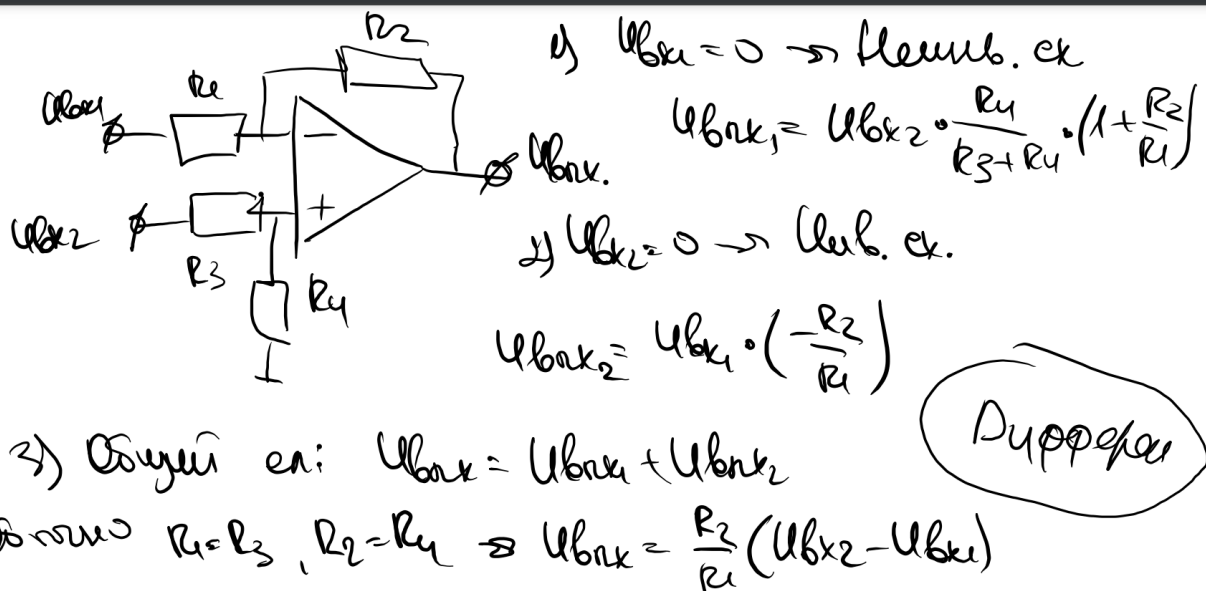 R2
R1
Uвх1
−
Uвых.
+
Uвх2
R3
R4
1) Uвх1 = 0 → Неинв. сх
Uвых1 = Uвх2 · R4/(R3+R4) · (1 + R2/R1)
2) Uвх2 = 0 → Инв. сх.
Uвых2 = Uвх1 · (−R2/R1)
Дифферен
3) Общий сл: Uвых = Uвых1 + Uвых2
R1=R3, R2=R4 → Uвых = R2/R1 (Uвх2 − Uвх1)